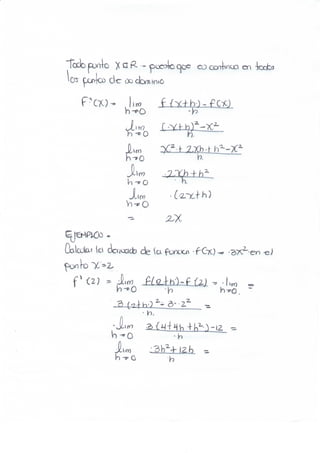 Todo punto X ∈ R - puesto que es continuo en todos
los puntos de su dominio
F'(X) = lim h→0 f(x+h) - f(x) / h
lim h→0 (x+h)² - x² / h
lim h→0 x² + 2xh + h² - x² / h
lim h→0 2xh + h² / h
lim h→0 (2x+h)
= 2x
EJEMPLO -
Calcular la derivada de la funcion f(x) = 3x² en el
punto X=2
f'(2) = lim h→0 f(2+h) - f(2) / h = lim h→0 =
3(2+h)² - 3·2² / h =
lim h→0 3(4+4h+h²) - 12 / h =
lim h→0 3h² + 12h / h =